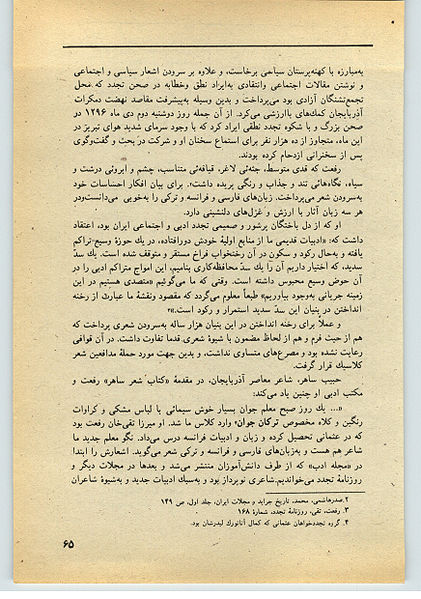 به‌مبارزه با کهنه‌پرستان سیاسی برخاست، و علاوه بر سرودن اشعار سیاسی و اجتماعی
و نوشتن مقالات اجتماعی وانتقادی به‌ایراد نطق وخطابه در صحن تجدد که محل
تجمع‌تشنگان آزادی بود می‌پرداخت و بدین وسیله به‌پیشرفت مقاصد نهضت دمکرات
آذربایجان کمك‌های باارزشی می‌کرد. از آن جمله روز دوشنبه دوم دی ماه ۱۲۹۶ در
صحن بزرگ و با شکوه تجدد نطقی ایراد کرد که با وجود سرمای شدید هوای تبریز در
این ماه، متجاوز از ده هزار نفر برای استماع سخنان او و شرکت در بحث و گفت‌وگوی
پس از سخنرانی ازدحام کرده بودند.
رفعت که قدی متوسط، جثه‌ئی لاغر، قیافه‌ئی متناسب، چشم و ابروئی درشت و
سیاه، نگاه‌هائی تند و جذاب و رنگی پریده داشت۲. برای بیان افکار احساسات خود
به‌سرودن شعر می‌پرداخت. زبان‌های فارسی و فرانسه و ترکی را به‌خوبی می‌دانست‌ودر
هر سه زبان آثار با ارزش و غزل‌های دلنشینی دارد.
او که از دل باختگان پرشور و صمیمی تجدد ادبی و اجتماعی ایران بود، اعتقاد
داشت که: «ادبیات قدیمی ما از منابع اولیهٔ خودش دورافتاده، در یك حوزهٔ وسیع‌تراکم
یافته و به‌حال رکود و سکون در آن رختخواب فراخ مستقر و متوقف شده است. یك سدّ
سدید، که اختیار داریم آن را یك سدّ محافظه‌کاری بنامیم، این امواج متراکم ادبی را در
آن حوض وسیع محبوس داشته است. وقتی که ما می‌گوئیم «متصدی هستیم در این
زمینه جریانی به‌وجود بیاوریم» طبعاً معلوم می‌گردد که مقصود ونقشهٔ ما عبارت از رخنه
انداختن در بنیان این سدّ سدید استمرار و رکود است.»۳
و عملاً برای رخنه انداختن در این بنیان هزار ساله به‌سرودن شعری پرداخت که
هم از حیث فرم و هم از لحاظ مضمون با شیوهٔ شعری قدما تفاوت داشت. در آن قوافی
رعایت نشده بود و مصرع‌های متساوی نداشت، و بدین جهت مورد حملهٔ مدافعین شعر
کلاسیك قرار گرفت.
حبیب ساهر، شاعر معاصر آذربایجان، در مقدمهٔ «کتاب شعر ساهر» رفعت و
مکتب ادبی او چنین یاد می‌کند:
«... یك روز صبح معلم جوان بسیار خوش سیمائی با لباس مشکی و کراوات
رنگین و کلاه مخصوص ترکان جوان۴ وارد کلاس ما شد. او میرزا تقی‌خان رفعت بود
که در عثمانی تحصیل کرده و زبان و ادبیات فرانسه درس می‌داد. نگو معلم جدید ما
شاعر هم هست و به‌زبان‌های فارسی و فرانسه و ترکی شعر می‌گوید. اشعارش را ابتدا
در «مجله ادب» که از طرف دانش‌آموزان منتشر می‌شد و بعدها در مجلات دیگر و
روزنامهٔ تجدد می‌خواندیم.شاعری نوپرداز بود و به‌سبك ادبیات جدید و به‌شیوهٔ شاعران
۲.صدرهاشمی، محمد، تاریخ جراید و مجلات ایران، جلد اول، ص ۱۴۹
۳. رفعت، تقی، روزنامهٔ تجدد، شمارهٔ ۱۶۸
۴. گروه تجددخواهان عثمانی که کمال آتاتورك لیدرشان بود.
۶۵